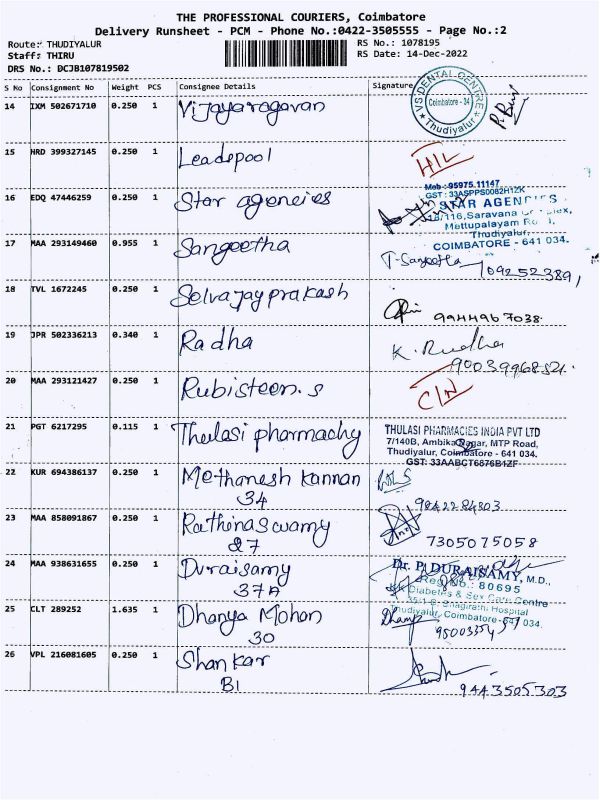 THE PROFESSIONAL COURIERS, Coimbatore
Delivery Runsheet - PCM - Phone No.:0422-3505555 - Page No.:2
Route: THUDIYALUR RS No.: 1078195
Staff: THIRU RS Date: 14-Dec-2022
DRS No.: DCJB107819502
S No Consignment No Weight PCS Consignee Details Signature
14 IXM 502671710 0.250 1 Vijayaragavan
VS DENTAL CENTRE
Coimbatore - 34
Thudiyalur
15 HRD 399327145 0.250 1 Leadspool
16 EDQ 47446259 0.250 1 Star agencies
Mob : 95975 11147
GST : 33ASPPS0082H1ZK
SMR AGENCIES
116, Saravana
Mettupalayam
Thudiyalur,
COIMBATORE - 641 034.
17 MAA 293149460 0.955 1 Sangeetha T-Sangeetha
18 TVL 1672245 0.250 1 Selvajayprakash 9944967038
19 JPR 502336213 0.340 1 Radha K. Radha
20 MAA 293121427 0.250 1 Rubisteen.s
21 PGT 6217295 0.115 1 Thulasi pharmachy
THULASI PHARMACIES INDIA PVT LTD
7/140B, Ambika Nagar, MTP Road,
Thudiyalur, Coimbatore - 641 034.
GST: 33AABCT6876B1ZF
22 KUR 694386137 0.250 1 Methanesh Kannan
34
23 MAA 858091867 0.250 1 Rathinaswamy 7305075058
27
24 MAA 938631655 0.250 1 Duraisamy
37A
Dr. P. DURAISAMY, M.D.,
Reg No.: 80695
Diabetes & Sex Care Centre
Hospital
Thudiyalur, Coimbatore-641 034.
25 CLT 289252 1.635 1 Dhanya Mohan
30
26 VPL 216081605 0.250 1 Shankar
B1
9443505303